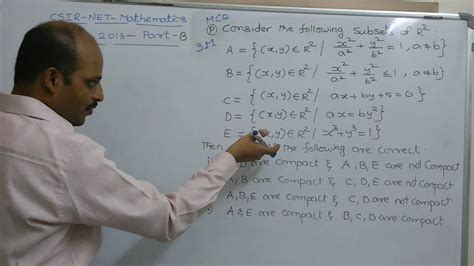 CSIR-NET-Mathematics
2013- Part-B
MCQ
Ⓟ Consider the following subsets of R²:
3M
A = {(x,y)∈R² / x²/a² + y²/b² = 1, a≠b}
B = {(x,y)∈R² / x²/a² + y²/b² ≤ 1, a≠b}
C = {(x,y)∈R² / ax+by+5=0}
D = {(x,y)∈R² / ax=by²}
E = {(x,y)∈R² / x²+y²=1}
Then the following are correct
D are compact & A,B,E are not Compact
A,B,E are compact & C,D,E are not compact
A,B,E are compact & C,D are not compact
A & E are compact & B,C,D are compact